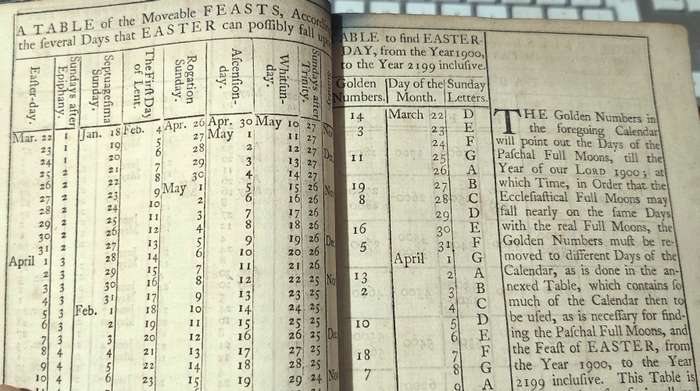 A TABLE of the Moveable FEASTS, Accordi
the ſeveral Days that EASTER can poſſibly fall upo
Eaſter-day.
Sundays after Epiphany.
Septuageſima Sunday.
The Firſt Day of Lent.
Rogation Sunday.
Aſcenſion-day.
Whitſun-day.
Sundays after Trinity.
Mar. 22 1 Jan. 18 Feb. 4 Apr. 26 Apr. 30 May 10 27
23 1 19 5 27 May 1 11 27
24 1 20 6 28 2 12 27
25 2 21 7 29 3 13 27
26 2 22 8 30 4 14 27
27 2 23 9 May 1 5 15 26
28 2 24 10 2 6 16 26
29 2 25 11 3 7 17 26
30 2 26 12 4 8 18 26
31 2 27 13 5 9 19 26
April 1 3 28 14 6 10 20 26
2 3 29 15 7 11 21 26
3 3 30 16 8 12 22 25
4 3 31 17 9 13 23 25
5 3 Feb. 1 18 10 14 24 25
6 3 2 19 11 15 25 25
7 3 3 20 12 16 26 25
8 4 4 21 13 17 27 25
9 4 5 22 14 18 28 25
10 4 6 23 15 19 29 24
ABLE to find EASTER-
DAY, from the Year 1900,
to the Year 2199 incluſive.
Golden Numbers.
Day of the Month.
Sunday Letters.
14 March 22 D
3 23 E
24 F
11 25 G
26 A
19 27 B
8 28 C
29 D
16 30 E
5 31 F
April 1 G
13 2 A
2 3 B
4 C
10 5 D
6 E
18 7 F
7 8 G
9 A
THE Golden Numbers in
the foregoing Calendar
will point out the Days of the
Paſchal Full Moons, till the
Year of our LORD 1900; at
which Time, in Order that the
Eccleſiaſtical Full Moons may
fall nearly on the ſame Days
with the real Full Moons, the
Golden Numbers muſt be re-
moved to different Days of the
Calendar, as is done in the an-
nexed Table, which contains ſo
much of the Calendar then to
be uſed, as is neceſſary for find-
ing the Paſchal Full Moons, and
the Feaſt of EASTER, from
the Year 1900, to the Year
2199 incluſive. This Table is